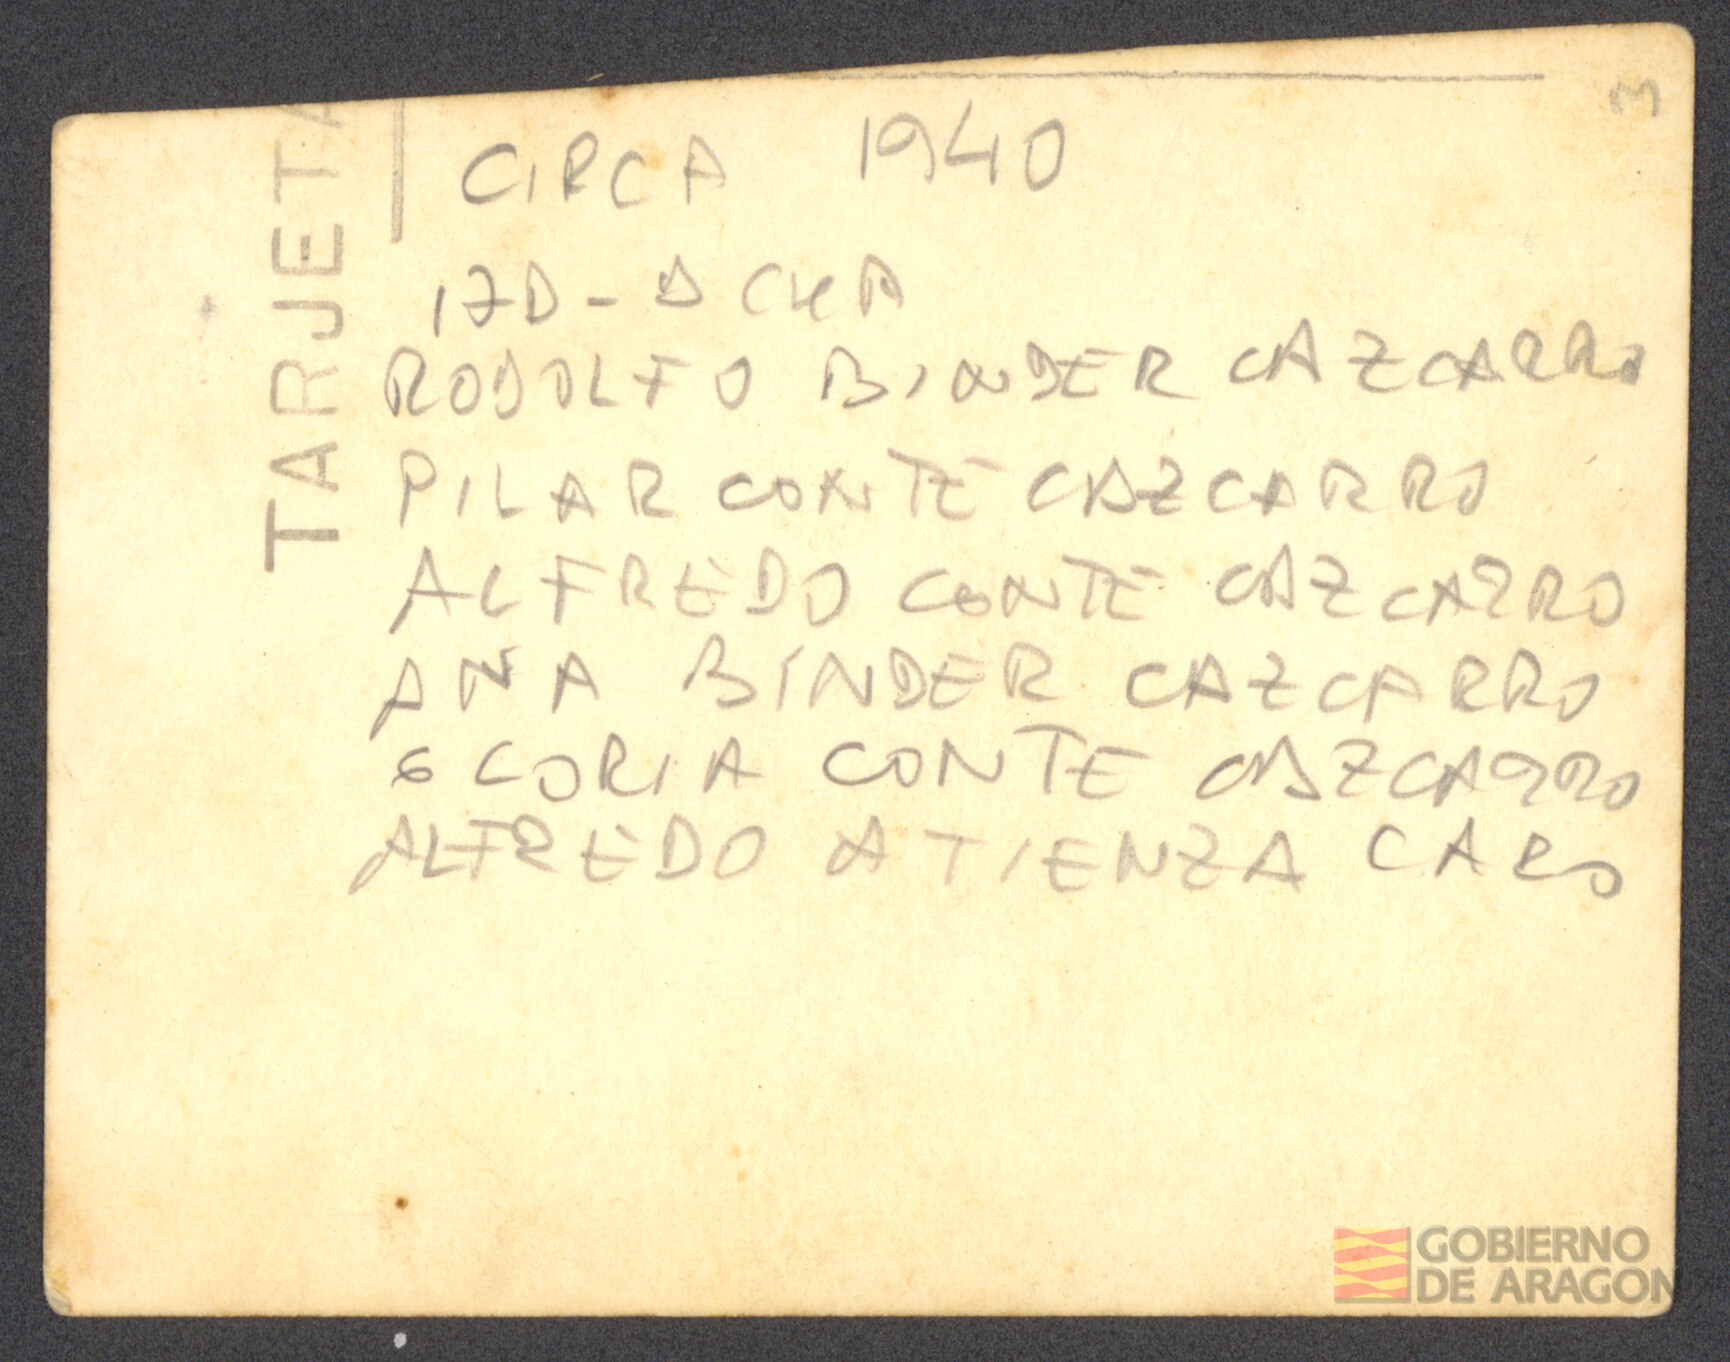 3
TARJETA
CIRCA 1940
IZD - DCHA
RODOLFO BINDER CAZCARRO
PILAR CONTE CAZCARRO
ALFREDO CONTE CAZCARRO
ANA BINDER CAZCARRO
GLORIA CONTE CAZCARRO
ALFREDO ATIENZA CARO
GOBIERNO
DE ARAGON